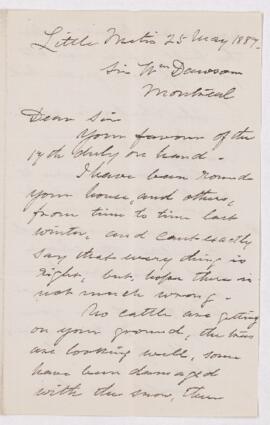 Little Metis 25 May 1887.
Sir Wm Dawson
Montreal
Dear Sir
Your favour of the
17th duly on hand.
I have been round
your house, and others,
from time to time last
winter, and cant exactly
say that every thing is
right, but hope there is
not much wrong.
No cattle are getting
on your ground, the trees
are looking well, some
have been damaged
with the snow,